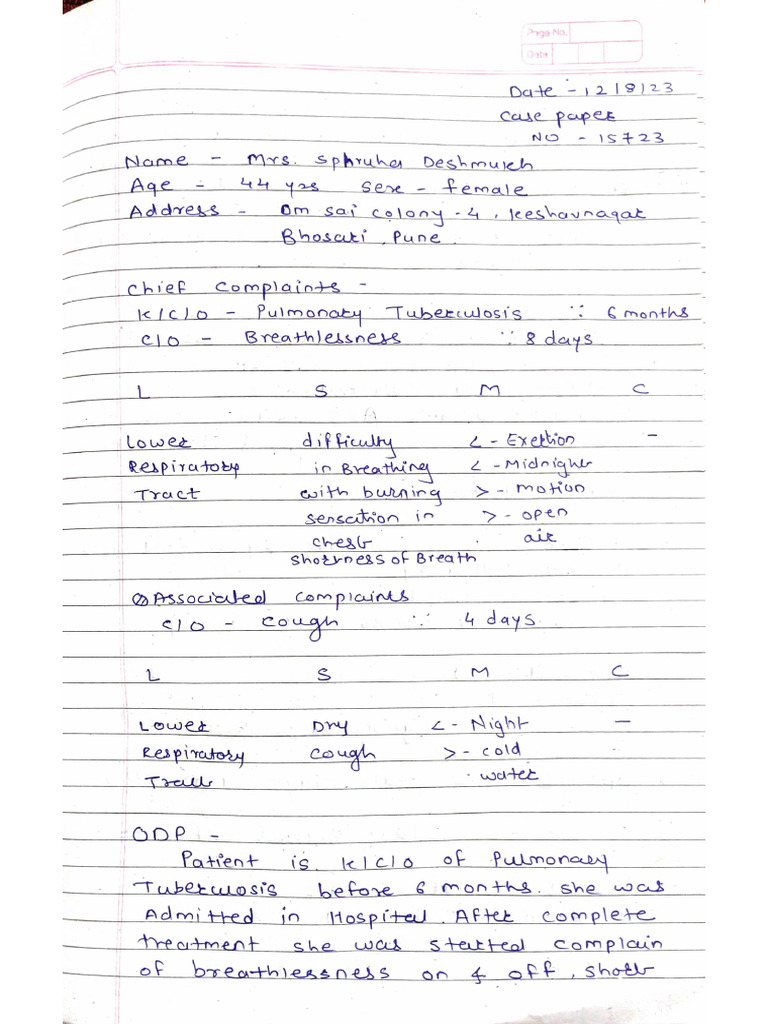 Page No.
Date
Date - 12/8/23
Case paper
No - 15723
Name - Mrs. Sphruha Deshmukh
Age - 44 yrs Sex - female
Address - Om sai colony - 4, Keshavnagar
Bhosari, Pune.
Chief Complaints -
K/C/O - Pulmonary Tuberculosis ∵ 6 months
C/O - Breathlessness ∵ 8 days
L S M C
Lower difficulty < - Exertion -
Respiratory in Breathing < - Midnight
Tract with burning > - motion
sensation in > - open
chest air
shortness of Breath
Associated complaints
C/O - cough ∵ 4 days
L S M C
Lower Dry < - Night -
Respiratory cough > - cold
Tract water
ODP -
Patient is K/C/O of Pulmonary
Tuberculosis before 6 months. she was
Admitted in Hospital. After complete
treatment she was started complain
of breathlessness on & off, short